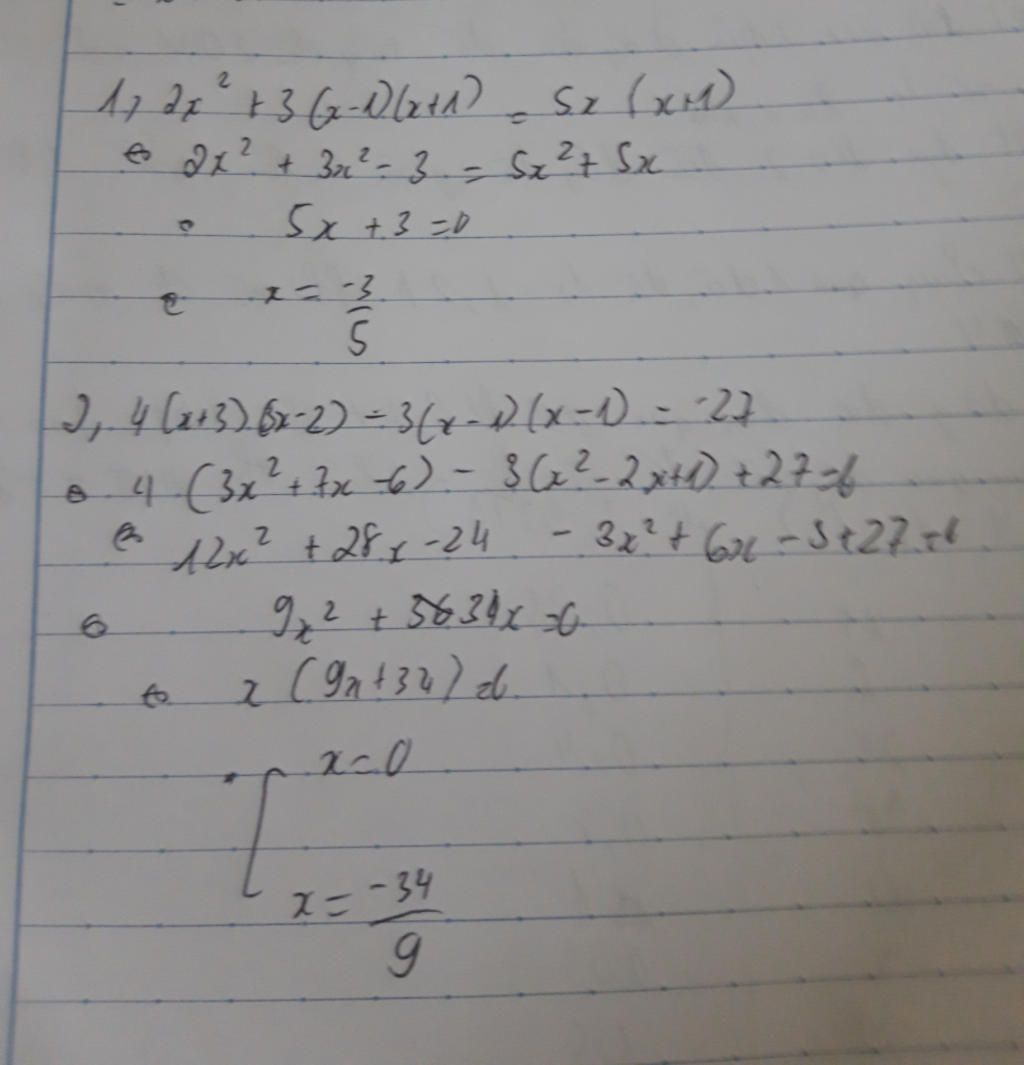 1, 2x² + 3(x-1)(x+1) = 5x (x+1)
⇔ 2x² + 3x² - 3 = 5x² + 5x
⇔ 5x + 3 = 0
⇔ x = -3/5
2, 4(x+3)(3x-2) - 3(x-1)(x-1) = -27
⇔ 4 (3x² + 7x - 6) - 3(x² - 2x+1) + 27 = 0
⇔ 12x² + 28x - 24 - 3x² + 6x - 3 + 27 = 0
⇔ 9x² + 34x = 0
⇔ x (9x+34) = 0
x = 0
x = -34/9